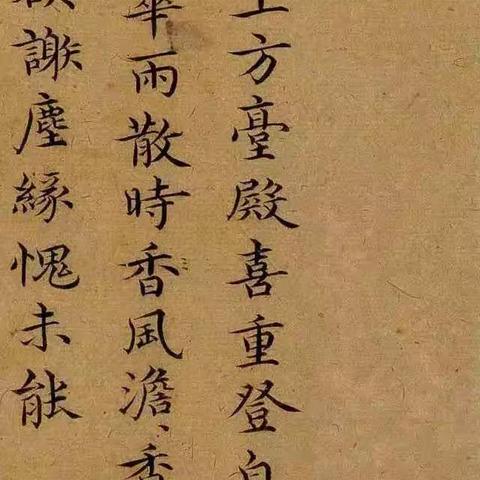 上方臺殿喜重登
華雨散時香風澹、香
謝塵緣愧未能